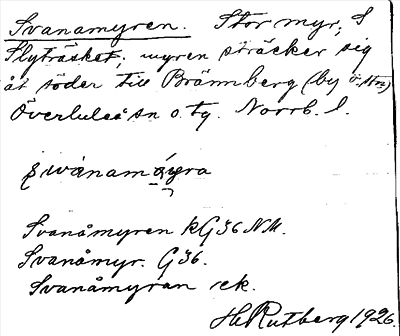 Svanamyren. Stor myr, S
Flyträsket; myren sträcker sig
åt söder till Brännberg (by
Överluleå sn o. tg. Norrb. l.
Svanåmyren kG36 NM.
Svanåmyr. G36.
Svanåmyran rek.
H. Rutberg 1926.